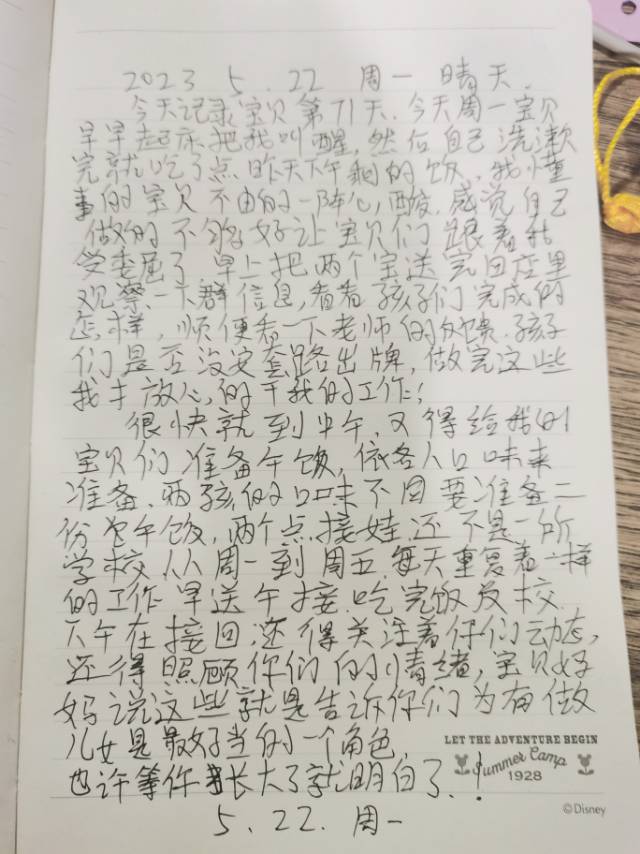 2023 5.22 周一 晴天.
今天记录宝贝第71天.今天周一宝贝
早早起床把我叫醒,然后自己洗漱
完就吃了点昨天下午剩的饭、我懂
事的宝贝不由的一阵心酸,感觉自己
做的不够好让宝贝们跟着我
受委屈了 早上把两个宝送完回店里
观察一下群信息,看看孩子们完成的
怎样,顺便看一下老师的反馈.孩子
们是否没安套路出牌,做完这些
我才放心的干我的工作!
很快就到中午.又得给我的
宝贝们准备午饭,依各人口味来
准备、两孩的口味不同要准备二
份午饭,两个点.接娃.还不是一所
学校从周一到周五每天重复着一样
的工作早送午接.吃完饭反校.
下午在接回.还得关注着你们动态,
还得照顾你们的情绪,宝贝好
妈说这些就是告诉你们为有做
儿女是最好当的一个角色,
也许等你长大了就明白了、!
5、22.周一
LET THE ADVENTURE BEGIN
Summer Camp
1928
©Disney